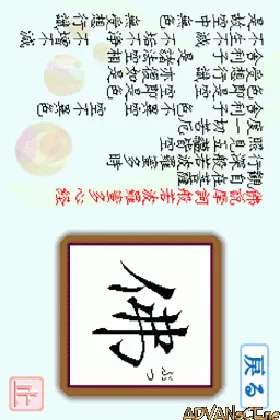 佛説摩訶般若波羅蜜多心経
觀自在菩薩
行深般若波羅蜜多時
照見五蘊皆空
度一切苦厄
舎利子 色不異空 空不異色
色即是空 空即是色
受想行識 亦復如是
舎利子 是諸法空相
不生不滅 不垢不浄 不増不減
是故空中無色 無受想行識
佛
ぶつ
戻る
止